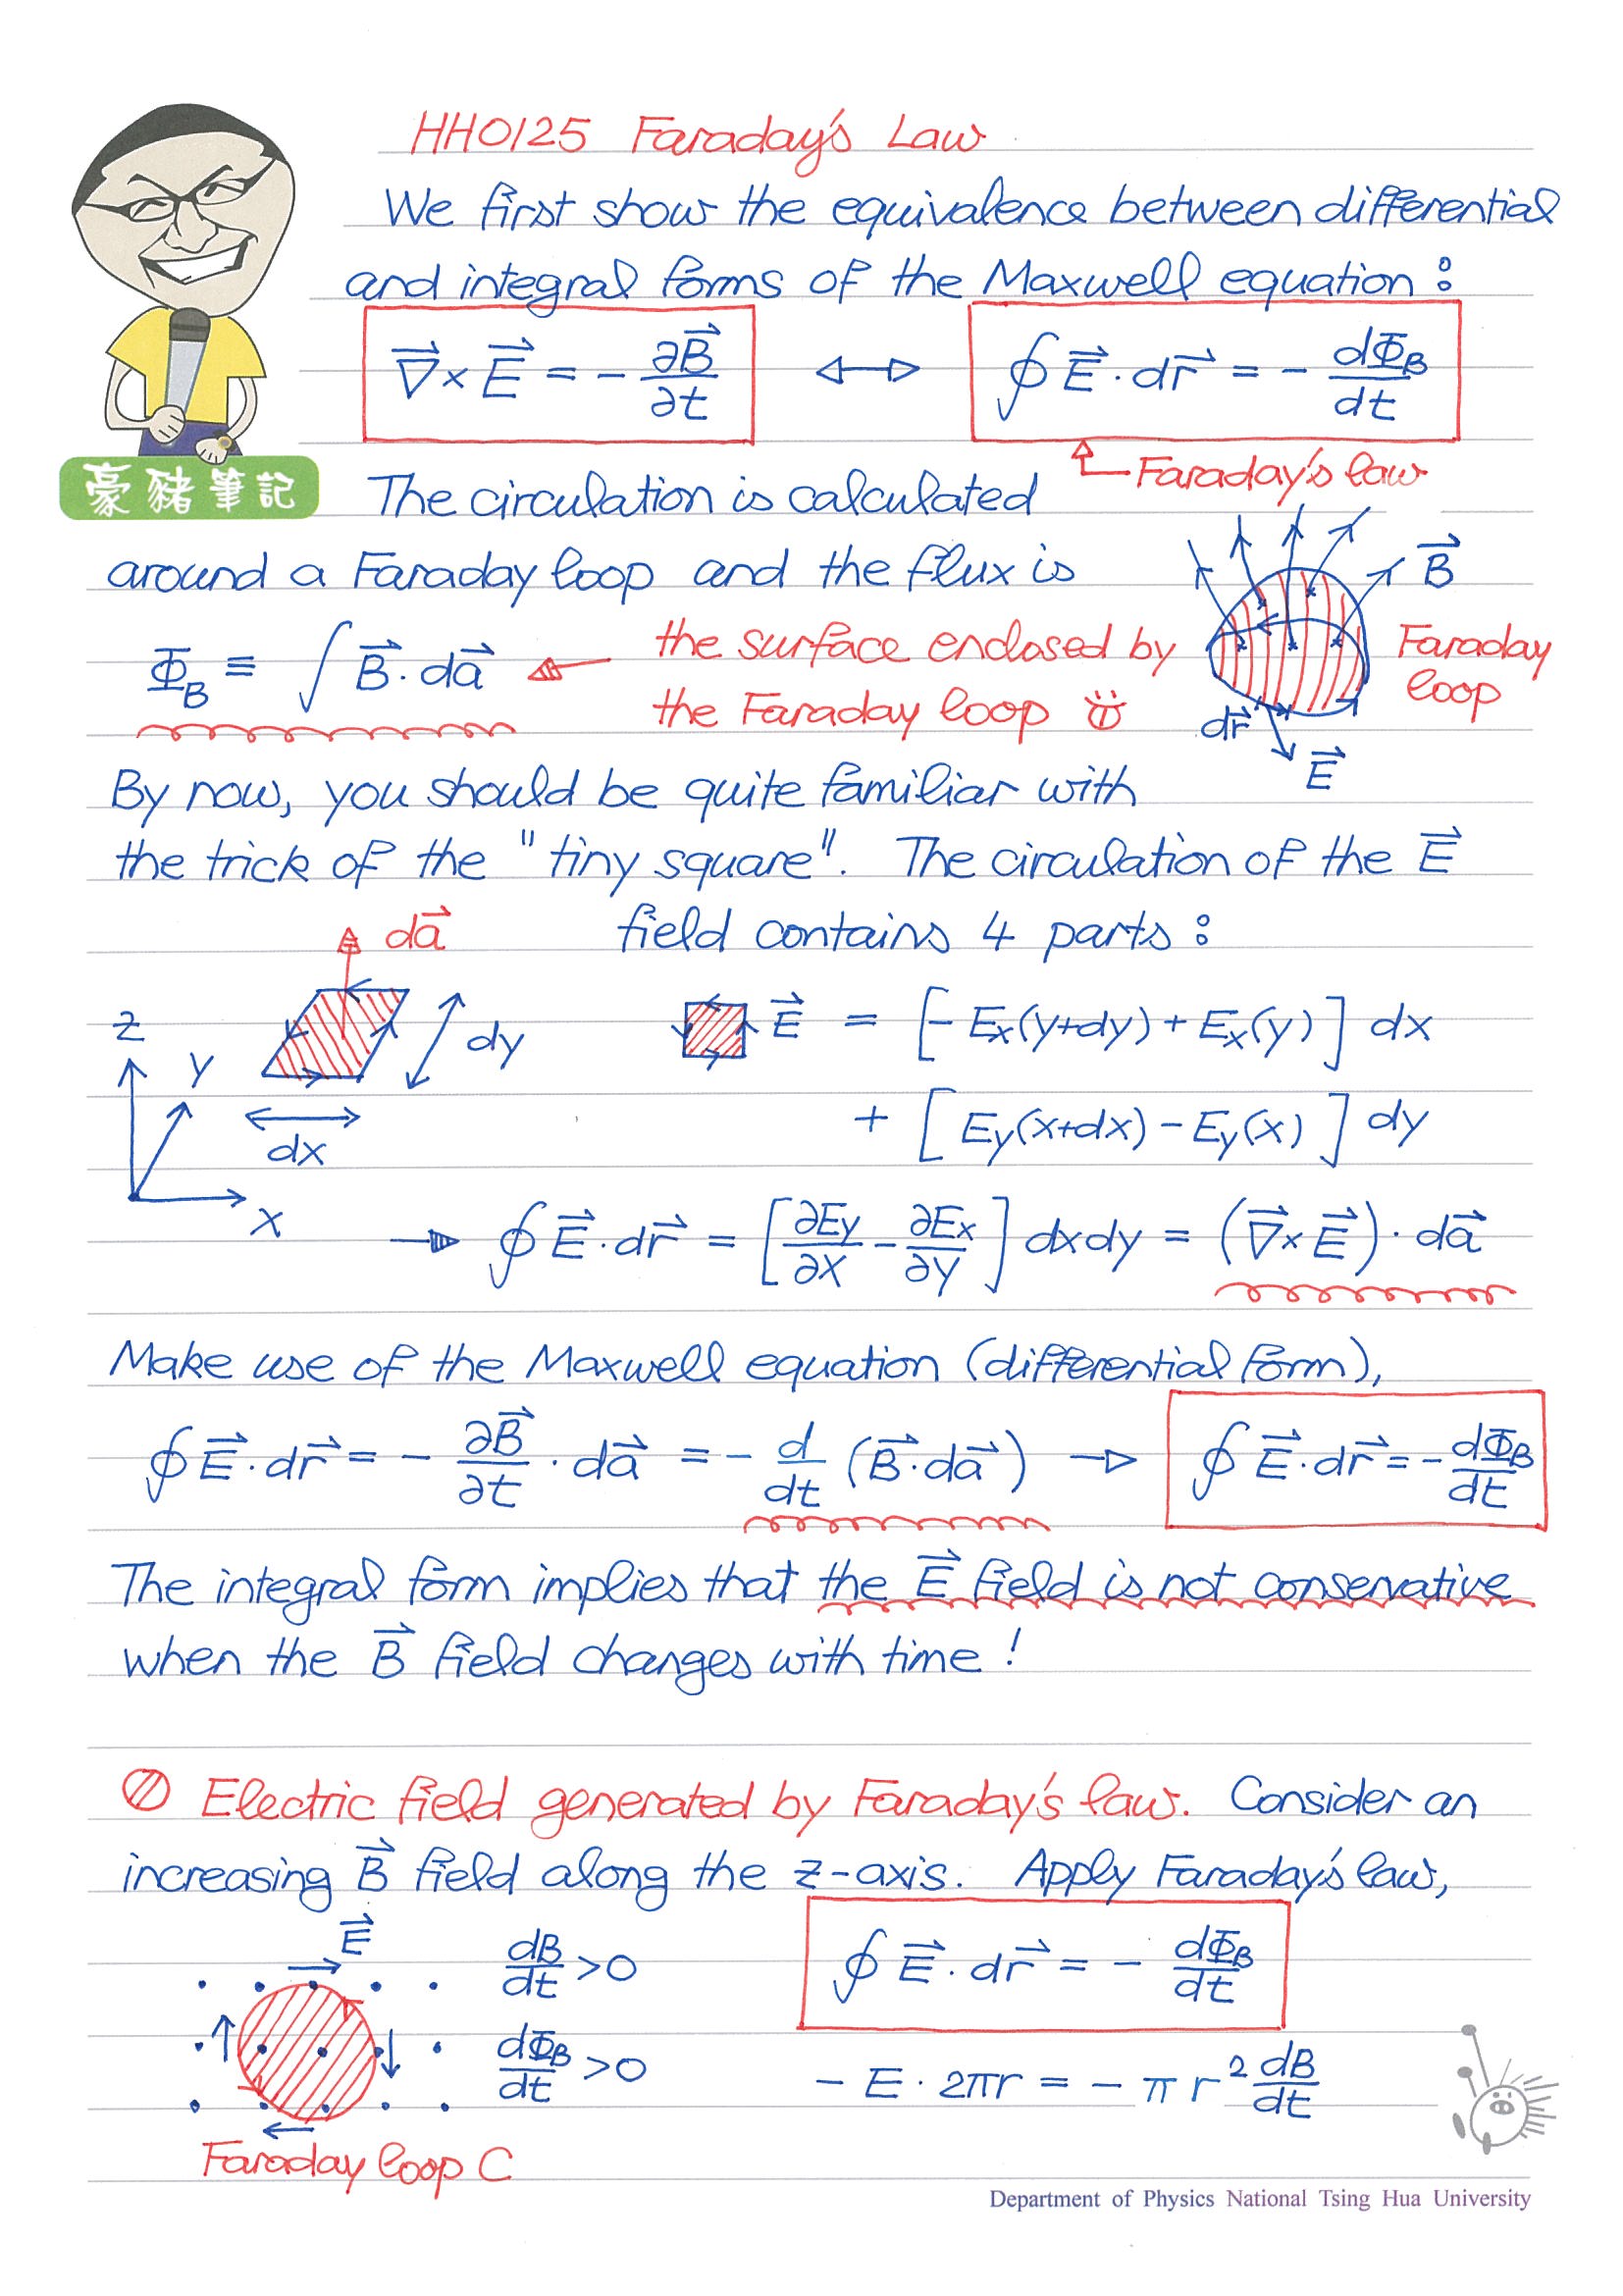 HH0125 Faraday's Law
We first show the equivalence between differential
and integral forms of the Maxwell equation :
∇⃗ × E⃗ = − ∂B⃗/∂t ↔ ∮ E⃗ · dr⃗ = − dΦ_B/dt
Faraday's law
豪豬筆記
The circulation is calculated
around a Faraday loop and the flux is
B⃗
Φ_B ≡ ∫ B⃗ · da⃗ ← the surface enclosed by
the Faraday loop
Faraday
loop
dr⃗
E⃗
By now, you should be quite familiar with
the trick of the "tiny square". The circulation of the E⃗
field contains 4 parts :
da⃗
z
y
x
dy
dx
E⃗ = [− Ex(y+dy) + Ex(y)] dx
+ [Ey(x+dx) − Ey(x)] dy
→ ∮ E⃗ · dr⃗ = [∂Ey/∂x − ∂Ex/∂y] dxdy = (∇⃗ × E⃗) · da⃗
Make use of the Maxwell equation (differential form),
∮ E⃗ · dr⃗ = − ∂B⃗/∂t · da⃗ = − d/dt (B⃗ · da⃗) → ∮ E⃗ · dr⃗ = − dΦ_B/dt
The integral form implies that the E⃗ field is not conservative
when the B⃗ field changes with time !
Electric field generated by Faraday's law. Consider an
increasing B⃗ field along the z-axis. Apply Faraday's law,
E⃗
dB/dt > 0
∮ E⃗ · dr⃗ = − dΦ_B/dt
dΦ_B/dt > 0
− E · 2πr = − πr² dB/dt
Faraday loop C
Department of Physics National Tsing Hua University